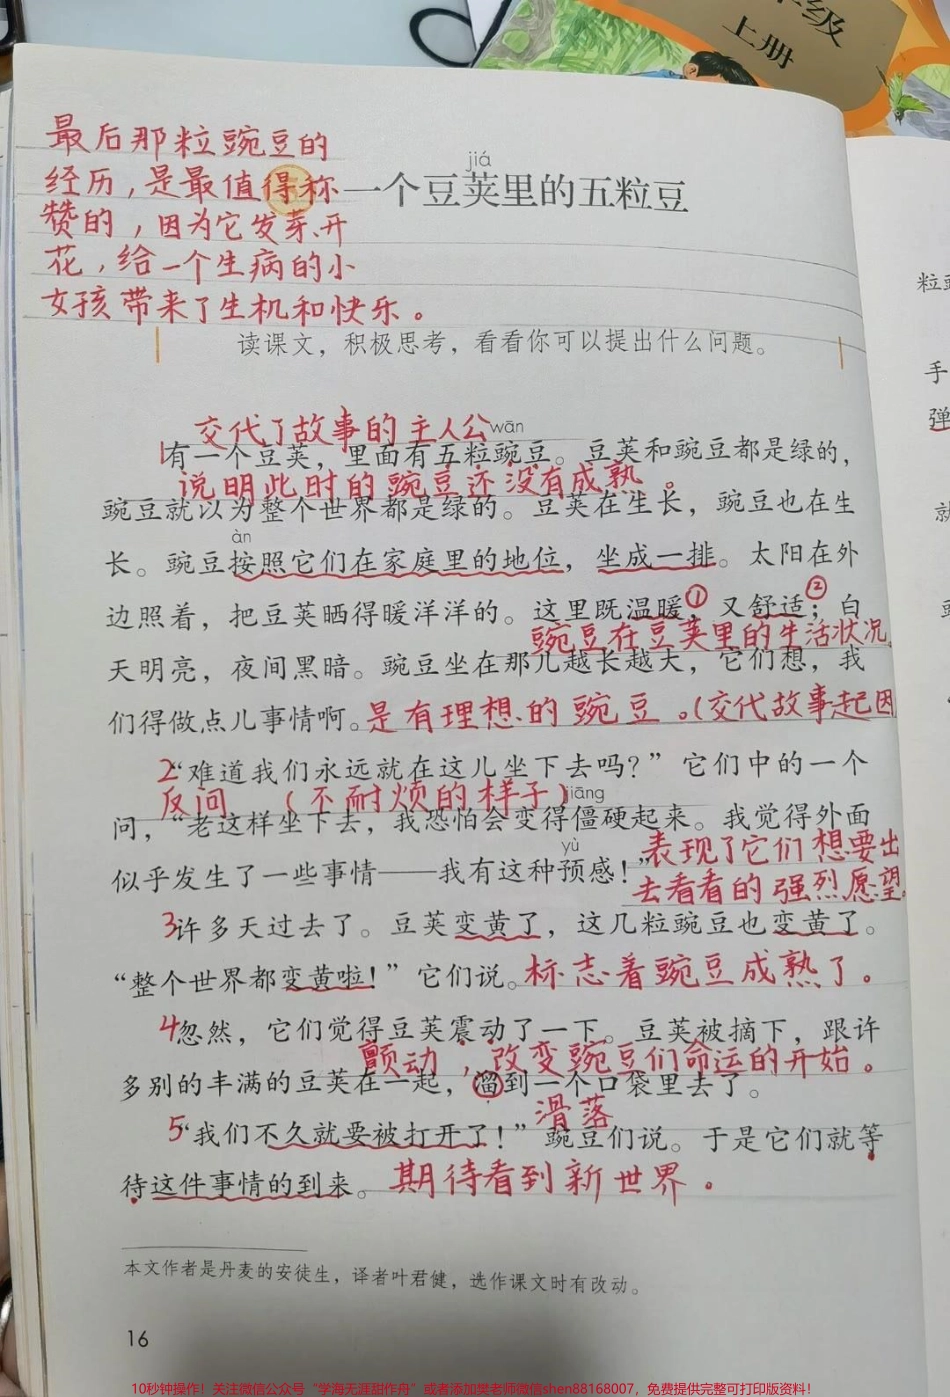 年级
上册
最后那粒豌豆的
经历，是最值得称
赞的，因为它发芽、开
花，给一个生病的小
女孩带来了生机和快乐。
jiá
一个豆荚里的五粒豆
读课文，积极思考，看看你可以提出什么问题。
交代了故事的主人公
wān
1有一个豆荚，里面有五粒豌豆。豆荚和豌豆都是绿的，
说明此时的豌豆还没有成熟。
豌豆就以为整个世界都是绿的。豆荚在生长，豌豆也在生
àn
长。豌豆按照它们在家庭里的地位，坐成一排。太阳在外
边照着，把豆荚晒得暖洋洋的。这里既温暖①，又舒适②；白
豌豆在豆荚里的生活状况。
天明亮，夜间黑暗。豌豆坐在那儿越长越大，它们想，我
们得做点儿事情啊。是有理想的豌豆。(交代故事起因
2“难道我们永远就在这儿坐下去吗？”它们中的一个
反问 (不耐烦的样子)
jiāng
问，“老这样坐下去，我恐怕会变得僵硬起来。我觉得外面
yù
似乎发生了一些事情——我有这种预感！”
表现了它们想要出
去看看的强烈愿望。
3许多天过去了。豆荚变黄了，这几粒豌豆也变黄了。
“整个世界都变黄啦！”它们说。标志着豌豆成熟了。
4忽然，它们觉得豆荚震动了一下。豆荚被摘下，跟许
颤动，改变豌豆们命运的开始。
多别的丰满的豆荚在一起，溜到一个口袋里去了。
滑落
5“我们不久就要被打开了！”豌豆们说。于是它们就等
待这件事情的到来。期待看到新世界。
本文作者是丹麦的安徒生，译者叶君健，选作课文时有改动。
16
粒
手
弹
就
10秒钟操作！关注微信公众号“学海无涯甜作舟”或者添加樊老师微信shen88168007，免费提供完整可打印版资料！